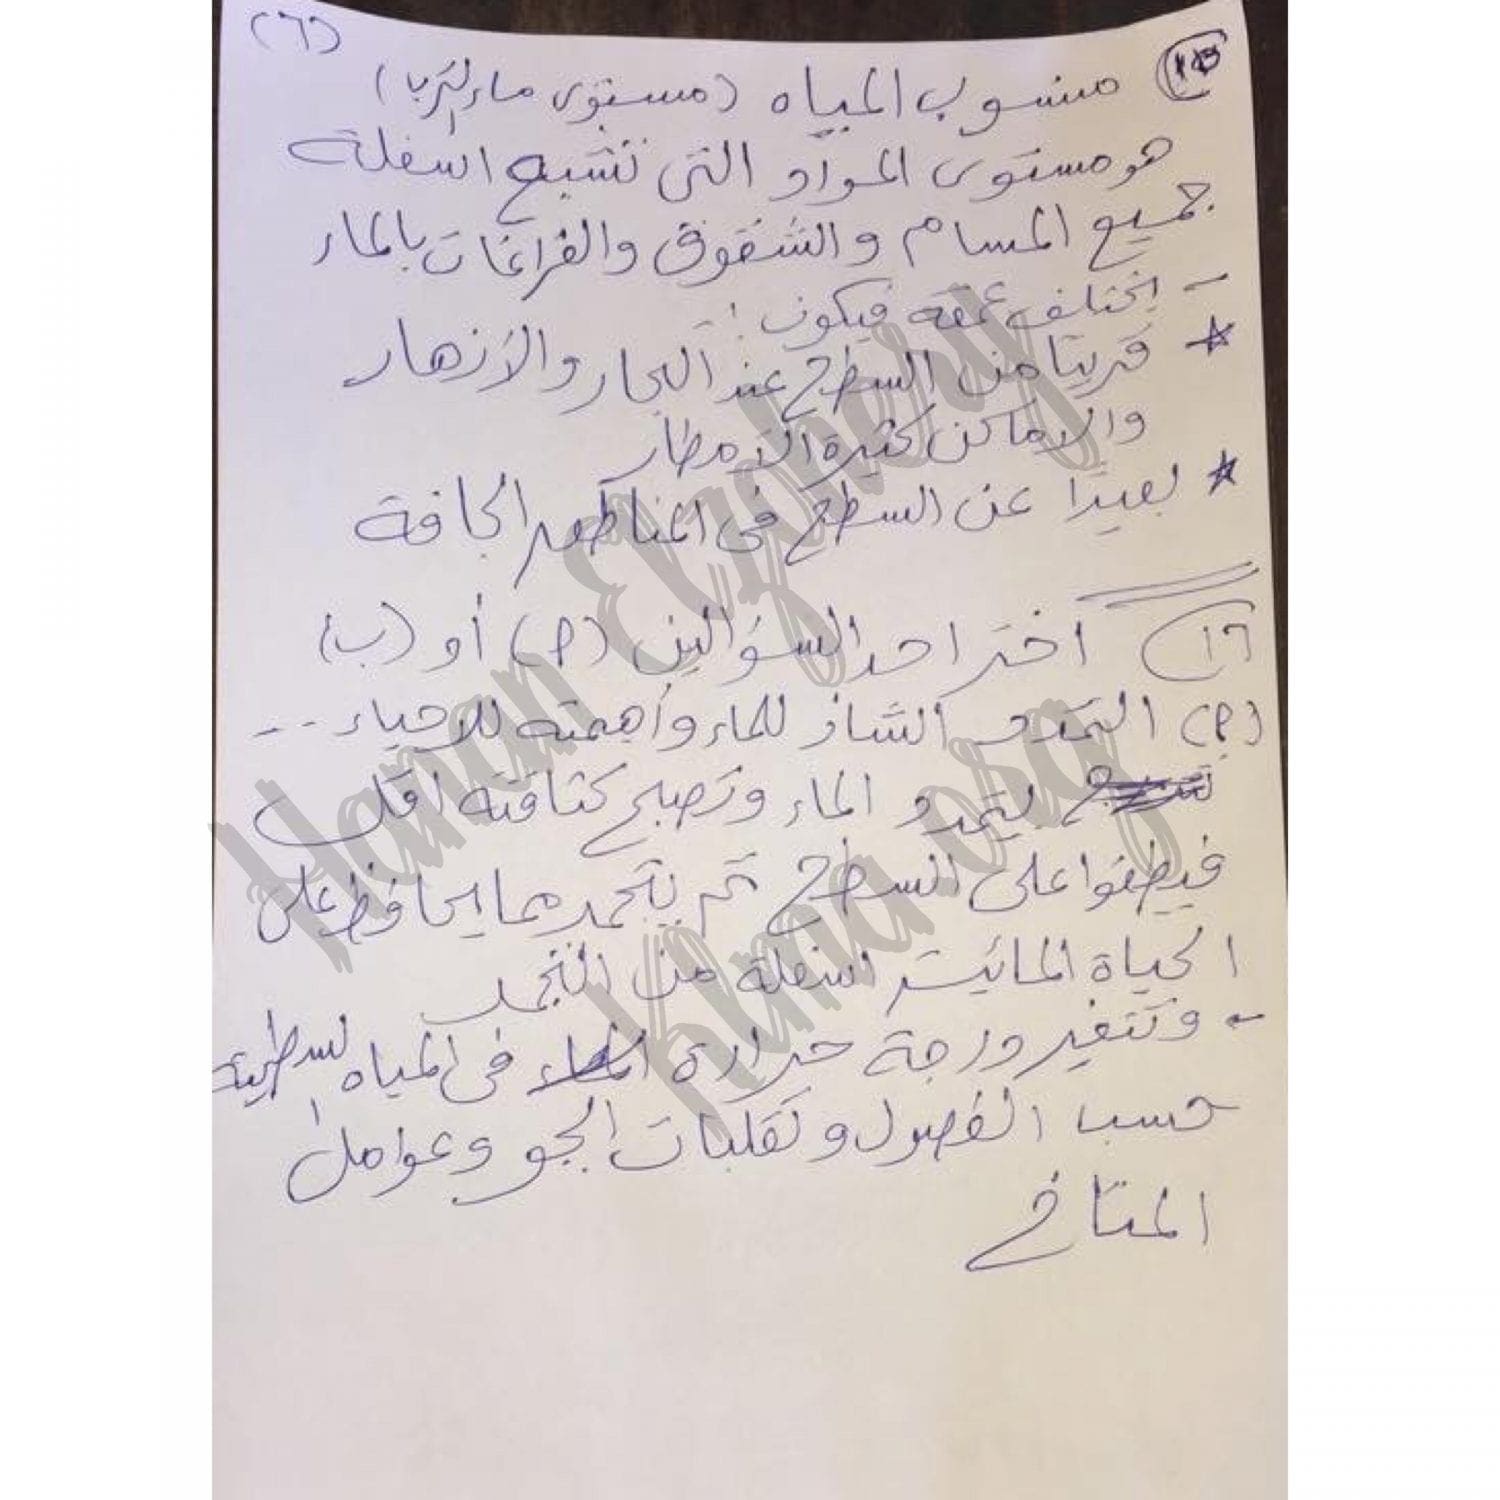 (٦)
منسوب المياه (مستوى ماء التربة)
هو مستوى المواد التى تتشبع اسفلة
جميع المسام والشقوق والفراغات بالماء
- يختلف عمقه فيكون :
* قريبا من السطح عند البحار والأنهار
والاماكن كثيرة الأمطار
* بعيدًا عن السطح فى المناطق الجافة
١٦ اختر احد السؤالين (م) أو (ب)
(م) التمدد الشاذ للماء وأهميته للاحياء ...
يتمدد الماء وتصبح كثافته اقل
فيطفوا على السطح ثم يتجمد مما يحافظ على
الحياة المائية اسفلة من التجمد
- وتتغير درجة حرارة الماء فى المياه السطحية
حسب الفصول وتقلبات الجو وعوامل
المناخ
Hanan Elzohery
kma.org